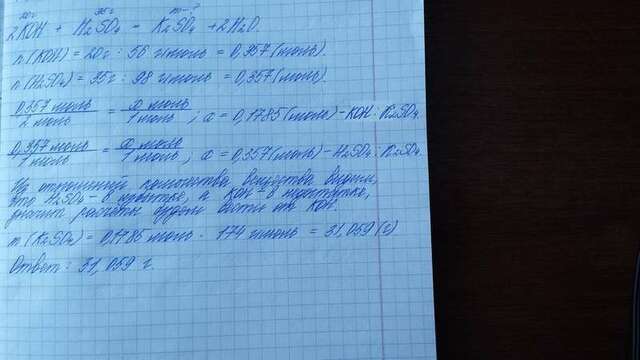 20г 35г m-?
2KOH + H₂SO₄ = K₂SO₄ + 2H₂O.
n(KOH) = 20г : 56 г/моль = 0,357 (моль).
n(H₂SO₄) = 35г : 98 г/моль = 0,357 (моль).
0,357 моль / 2 моль = x моль / 1 моль ; x = 0,1785 (моль) - KOH : K₂SO₄.
0,357 моль / 1 моль = x моль / 1 моль ; x = 0,357 (моль) - H₂SO₄ : K₂SO₄.
Из отношений количества вещества видим,
что H₂SO₄ - в избытке, а KOH - в недостатке,
значит расчеты будем вести по KOH.
m(K₂SO₄) = 0,1785 моль · 174 г/моль = 31,059 (г)
Ответ: 31,059 г.